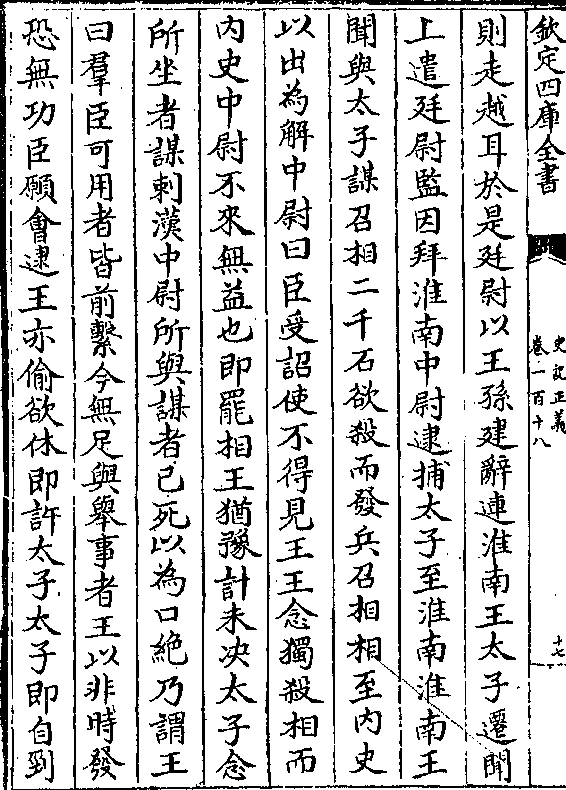 欽定四庫全書
史記正義
卷一百十八
十七
則走越耳於是廷尉以王孫建辭連淮南王太子遷聞
上遣廷尉監因拜淮南中尉逮捕太子至淮南淮南王
聞與太子謀召相二千石欲殺而發兵召相相至内史
以出為解中尉曰臣受詔使不得見王王念獨殺相而
内史中尉不來無益也即罷相王猶豫計未決太子念
所坐者謀刺漢中尉所與謀者已死以為口絶乃謂王
曰羣臣可用者皆前繫今無足與舉事者王以非時發
恐無功臣願會逮王亦偷欲休即許太子太子即自剄